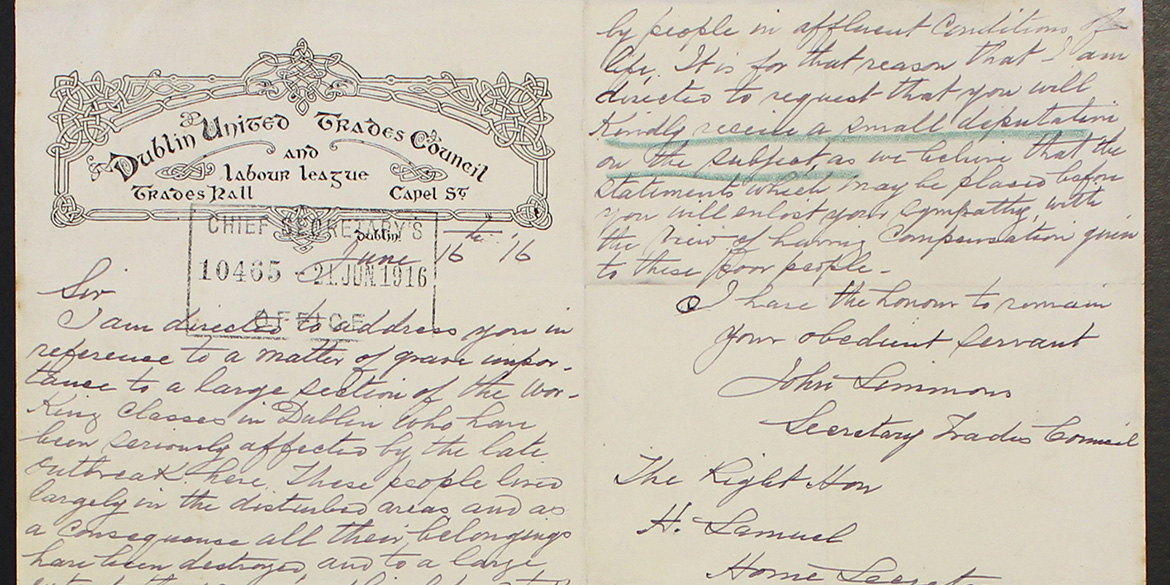 Dublin United Trades Council
and
Labour League
Trades Hall Capel St.
CHIEF SECRETARY'S
10465 - 21 JUN 1916
OFFICE
Dublin!
June 16th '16
Sir
I am directed to address you in
reference to a matter of grave impor-
tance to a large section of the wor-
king classes in Dublin who have
been seriously affected by the late
outbreak here. These people lived
largely in the disturbed areas and as
a consequence all their belongings
have been destroyed and to a large
by people in affluent conditions of
life. It is for that reason that I am
directed to request that you will
kindly receive a small deputation
on the subject as we believe that the
statements which may be placed before
you will enlist your sympathy, with
the view of having compensation given
to these poor people -
I have the honour to remain
Your obedient servant
John Simmons
Secretary Trades Council
The Right Hon
H. Samuel
Home